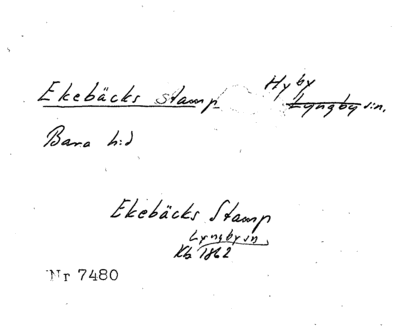 Hyby
Ekebäcks stamp Lyngby sn.
Bara h:d
Ekebäcks Stamp
Lyngby sn
Kb 1862
Nr 7480